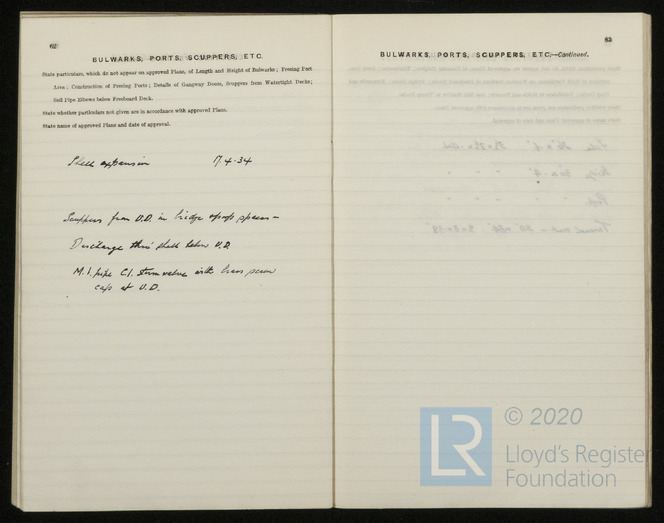 62
BULWARKS, PORTS, SCUPPERS, ETC.
State particulars, which do not appear on approved Plans, of Length and Height of Bulwarks; Freeing Port
Area; Construction of Freeing Ports; Details of Gangway Doors, Scuppers from Watertight Decks;
Soil Pipe Elbows below Freeboard Deck.
State whether particulars not given are in accordance with approved Plans.
State name of approved Plans and date of approval.
Shell expansion 17.4.34
Scuppers from U.D. in bridge & poop spaces —
Discharge thro' shell below U.D.
M.I. pipe C.I. storm valve with brass screw
cap at U.D.
63
BULWARKS, PORTS, SCUPPERS, ETC.—Continued.
LR
© 2020
Lloyd's Register
Foundation